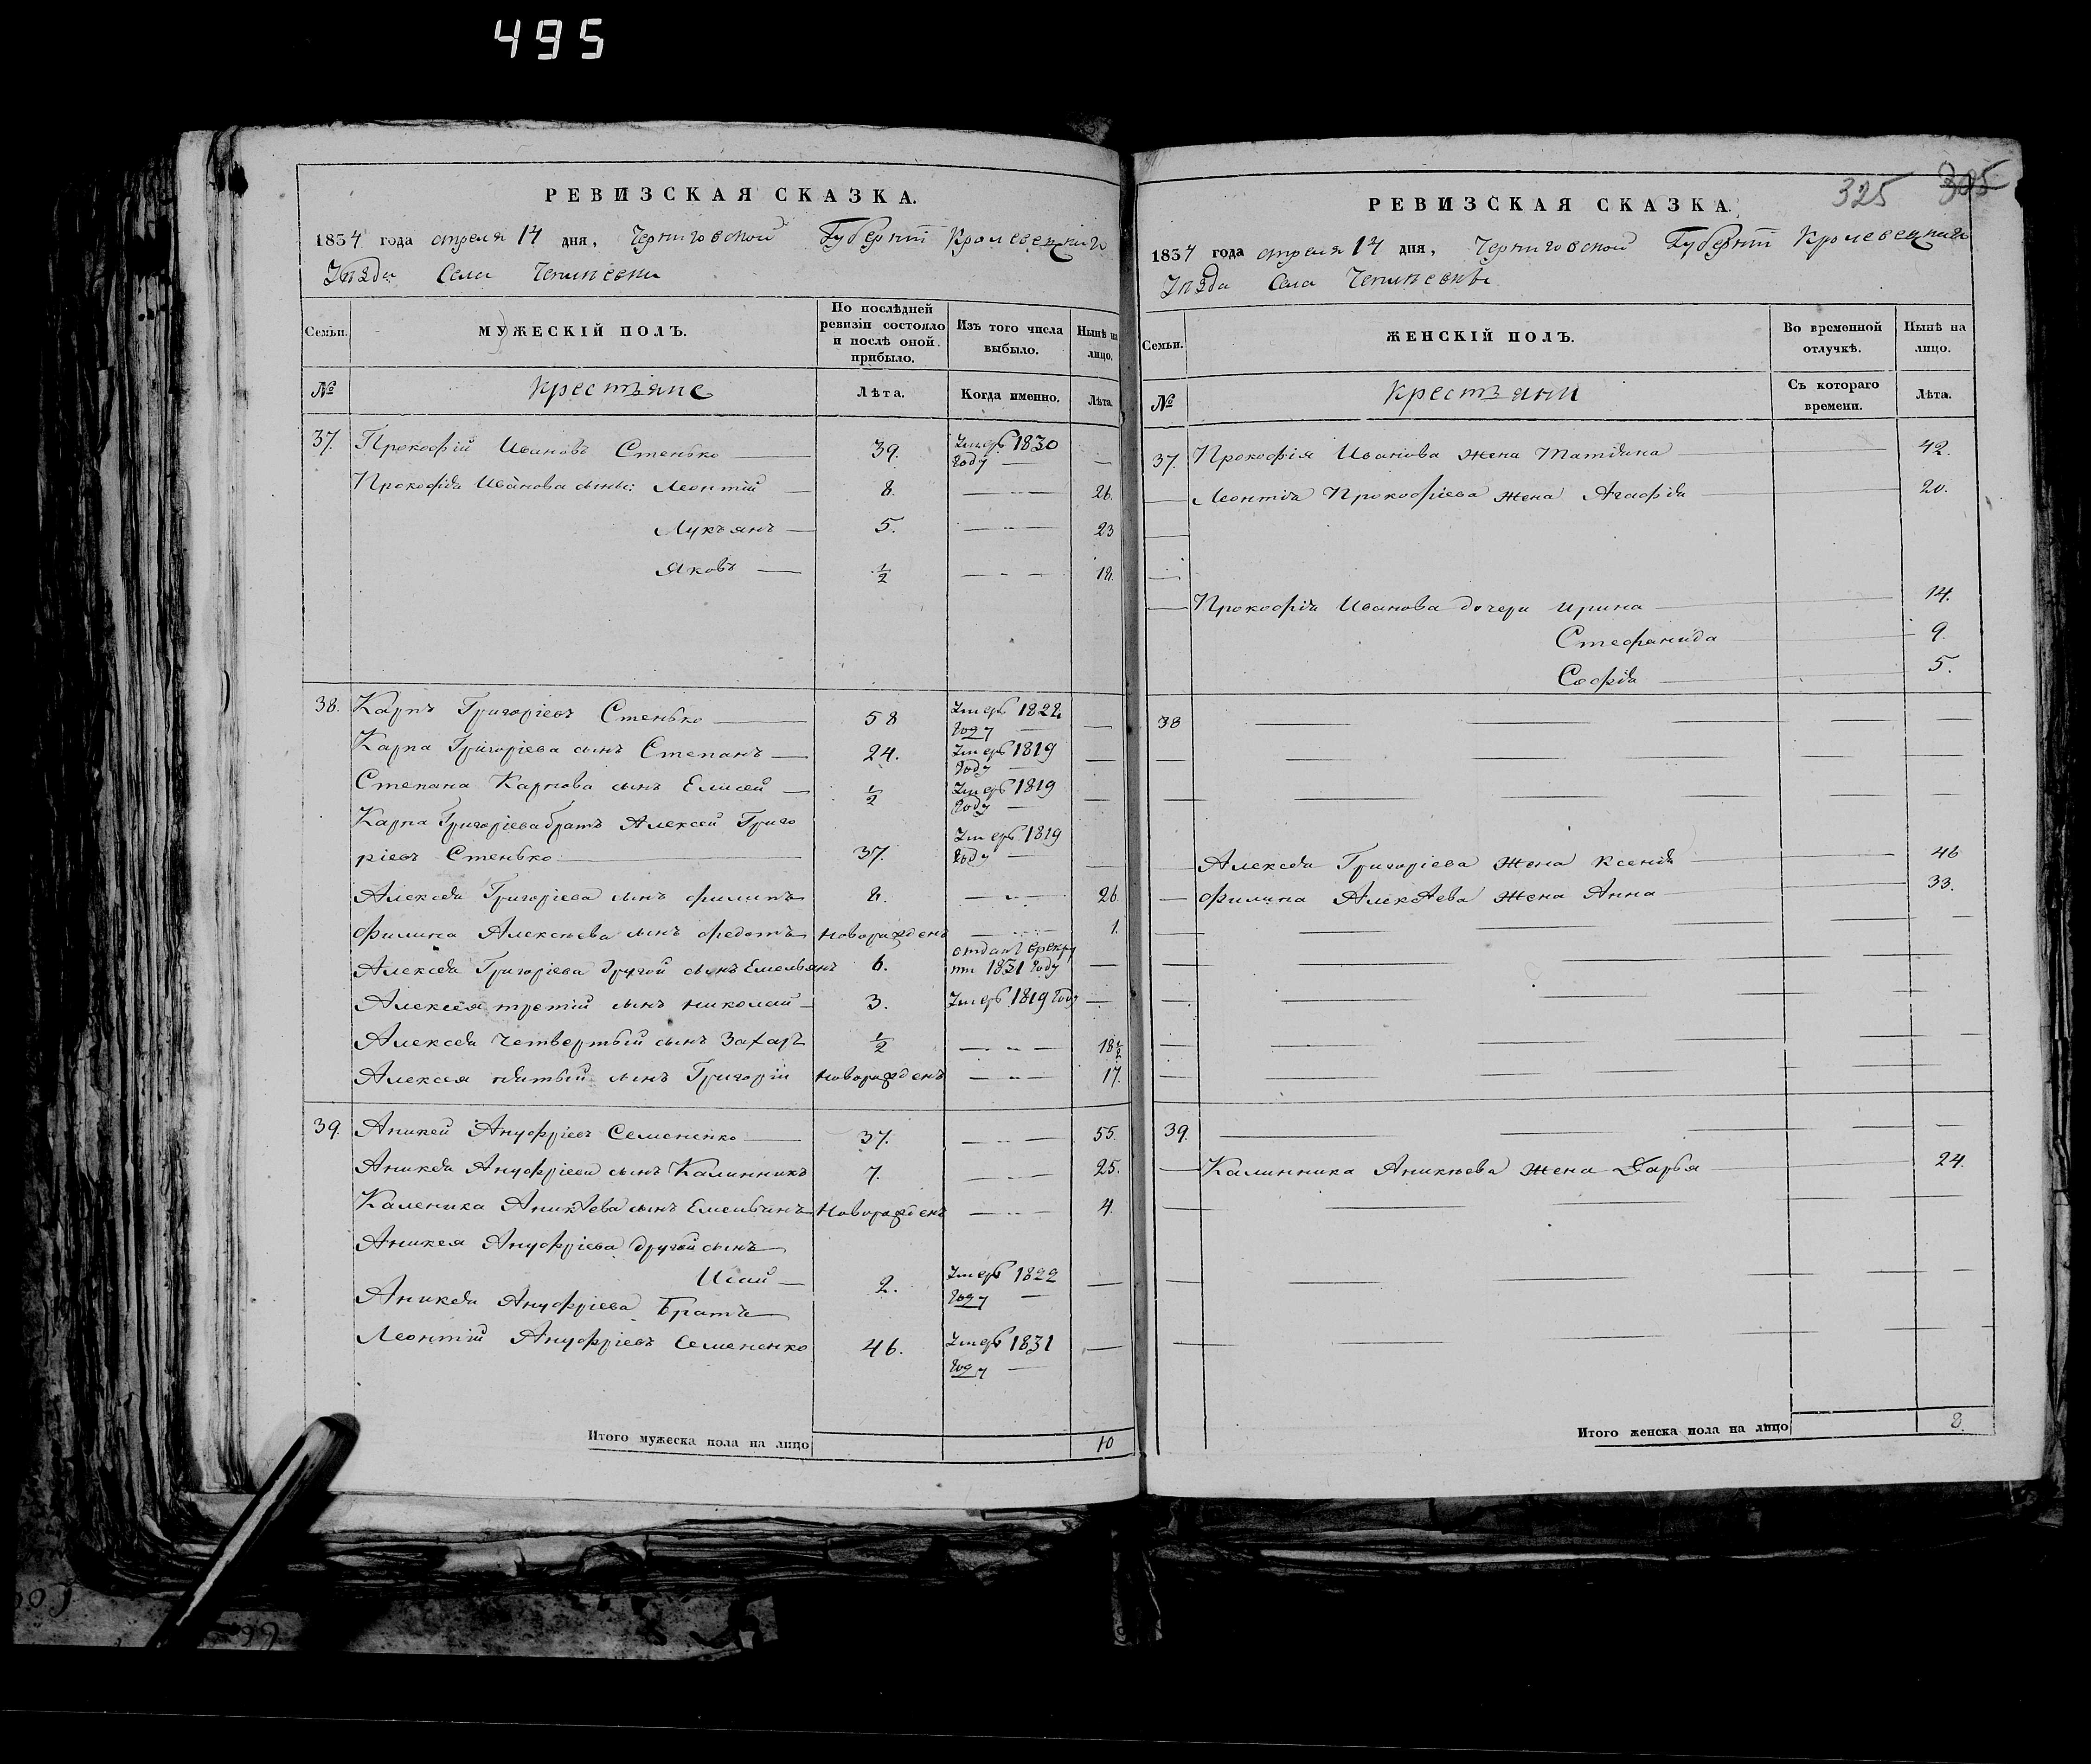 495
РЕВИЗСКАЯ СКАЗКА.
1834 года апреля 14 дня, Черниговской Губернiи Кролевецкаго
Уѣзда Села
Семьи.
МУЖЕСКІЙ ПОЛЪ.
По послѣдней ревизіи состояло и послѣ оной прибыло.
Изъ того числа выбыло.
Нынѣ на лицо.
№
Крестьяне
Лѣта.
Когда именно.
Лѣта.
37. Прокофій Ивановъ Стенько 39. Умеръ 1830 году
Прокофія Иванова сыны: Леонтій 8. 26.
Лукъянъ 5. 23
Яковъ ½ 18.
38. Карпъ Григорiевъ Стенько 58 Умеръ 1822 году
Карпа Григорiева сынъ Степанъ 24. Умеръ 1819 году
Степана Карпова сынъ Елисей ½ Умеръ 1819 году
Карпа Григорiева братъ Алексей Григо
рiевъ Стенько 37. Умеръ 1819 году
Алексея Григорiева сынъ филипъ 8. 26
филипа Алексѣева сынъ федотъ новорожденъ 1.
Алексея Григорiева другой сынъ Емельянъ 6. отданъ врекру
ты 1831 году
Алексея третiй сынъ николай 3. Умеръ 1819 году
Алексея четвертый сынъ Захаръ ½ 18½
Алексея пятый сынъ Григорiй новорожденъ 17.
39. Аникей Ануфрiевъ Семененко 37. 55.
Аникея Ануфрiева сынъ Калинникъ 7. 25.
Каленика Аникѣева сынъ Емельянъ новорожденъ 4.
Аникея Ануфрiева другой сынъ
Исай 2. Умеръ 1822 году
Аникея Ануфрiева братъ
Леонтiй Ануфрiевъ Семененко 46. Умеръ 1831 году
Итого мужеска пола на лицо 10
325 305
РЕВИЗСКАЯ СКАЗКА.
1834 года апреля 14 дня, Черниговской Губернiи Кролевецкаго
Уѣзда Села
Семьи.
ЖЕНСКІЙ ПОЛЪ.
Во временной отлучкѣ.
Нынѣ на лицо.
№
Крестьяни
Съ котораго времени.
Лѣта.
37. Прокофія Иванова жена Татiяна 42.
Леонтія Прокофiева жена Агафiя 20.
Прокофiя Иванова дочери Ирина 14.
Стефанида 9.
Софiя 5.
38
Алексея Григорiева жена Ксенiя 46
филипа Алексѣева жена Анна 33.
39.
Калинника Аникѣева жена Дарья 24.
Итого женска пола на лицо 8.